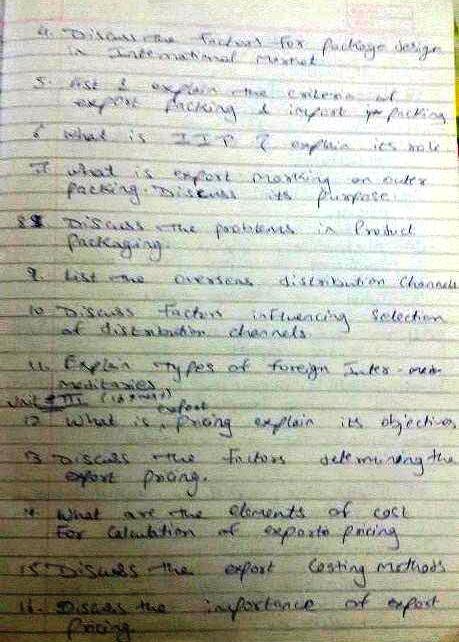 4. Discuss the factors for package design
in International market
5. List & explain the criteria of
export packing & import packing
6 What is IIP ? explain its role
7. what is export marking on outer
packing. Discuss its purpose.
8 Discuss the problems in Product
Packaging.
9. List the overseas distribution Channels
10 Discuss factors influencing Selection
of distribution channels.
11. Explain types of foreign Inter-
mediataries
Unit - III
12 What is export Pricing explain its objectives
13 Discuss the factors determining the
export pricing.
14 What are the elements of cost
For Calculation of exports pricing
15 Discuss the export Costing methods
16. Discuss the importance of export
pricing